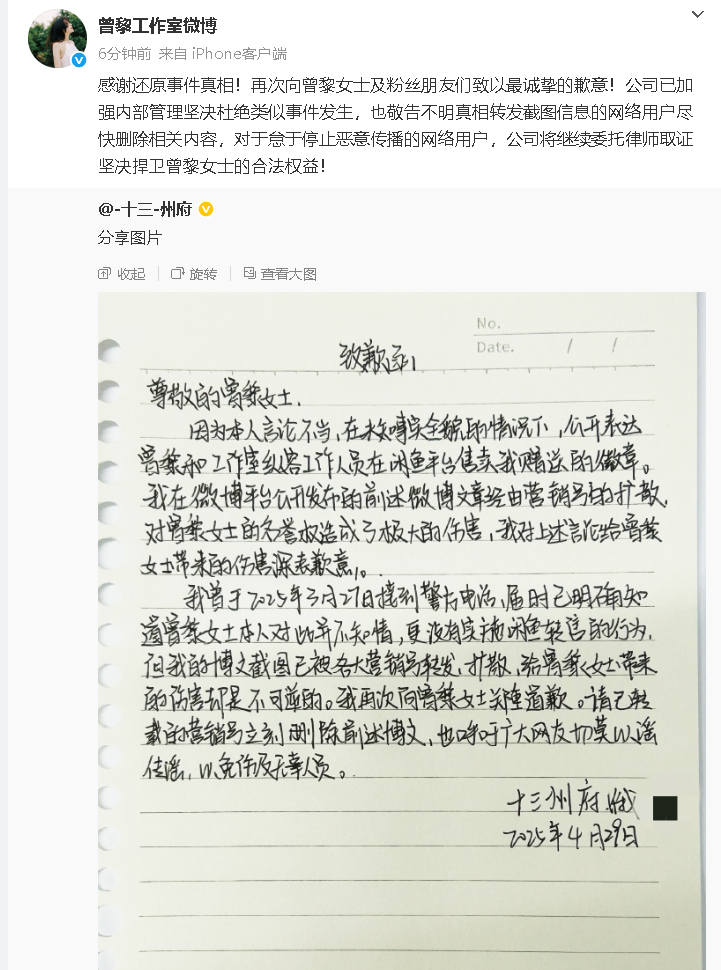 曾黎工作室微博
6分钟前 来自 iPhone客户端
感谢还原事件真相！再次向曾黎女士及粉丝朋友们致以最诚挚的歉意！公司已加
强内部管理坚决杜绝类似事件发生，也敬告不明真相转发截图信息的网络用户尽
快删除相关内容，对于怠于停止恶意传播的网络用户，公司将继续委托律师取证
坚决捍卫曾黎女士的合法权益！
@-十三-州府
分享图片
收起 旋转 查看大图
No.
Date. / /
致歉函
尊敬的曾黎女士.
因为本人言论不当，在未知事实全貌的情况下，公开表达
曾黎和工作室纵容工作人员在闲鱼平台售卖我赠送的徽章。
我在微博平台公开发布的前述微博文章经由营销号的扩散，
对曾黎女士的名誉权造成了极大的伤害，我对上述言论给曾黎
女士带来的伤害深表歉意。
我曾于2025年3月27日接到警方电话，届时已明确知
道曾黎女士本人对此并不知情，更没有实施闲鱼转售的行为，
但我的博文截图已被各大营销号转发、扩散，给曾黎女士带来
的伤害却是不可逆的。我再次向曾黎女士郑重道歉。请已转
载的营销号立刻删除前述博文，也呼吁广大网友切莫以谣
传谣，以免伤及无辜人员。
十三州府
2025年4月29日